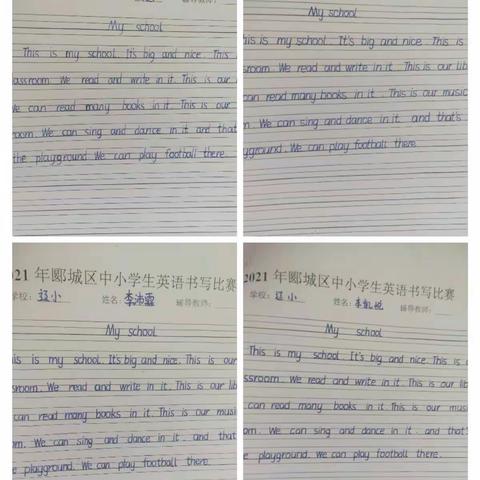 My school
This is my school. It's big and nice. This
assroom. We read and write in it. This is our
we can read many books in it. This is our
room. We can sing and dance in it and that
the playground. We can play football there.
My school
his is my school. It's big and nice. This is
sroom. We read and write in it. This is our lib
can read many books in it. This is our music
m. We can sing and dance in it. and that's
yground. We can play football there.
021年郾城区中小学生英语书写比赛
学校: 小 姓名: 李沛霖 辅导教师:
My school
is is my school. It's big and nice. This is our
sroom. We read and write in it. This is our lib
can read many books in it. This is our musi
om. We can sing and dance in it. and that
e playground. We can play football there.
2021年郾城区中小学生英语书写比赛
学校: 小 姓名: 李凯悦 辅导教师:
My school
This is my school It's big and nice. This is
ssroom. We read and write in it. This is our lib
can read many books in it. This is our musi
om. We can sing and dance in it. and that'
e playground. We can play football there.